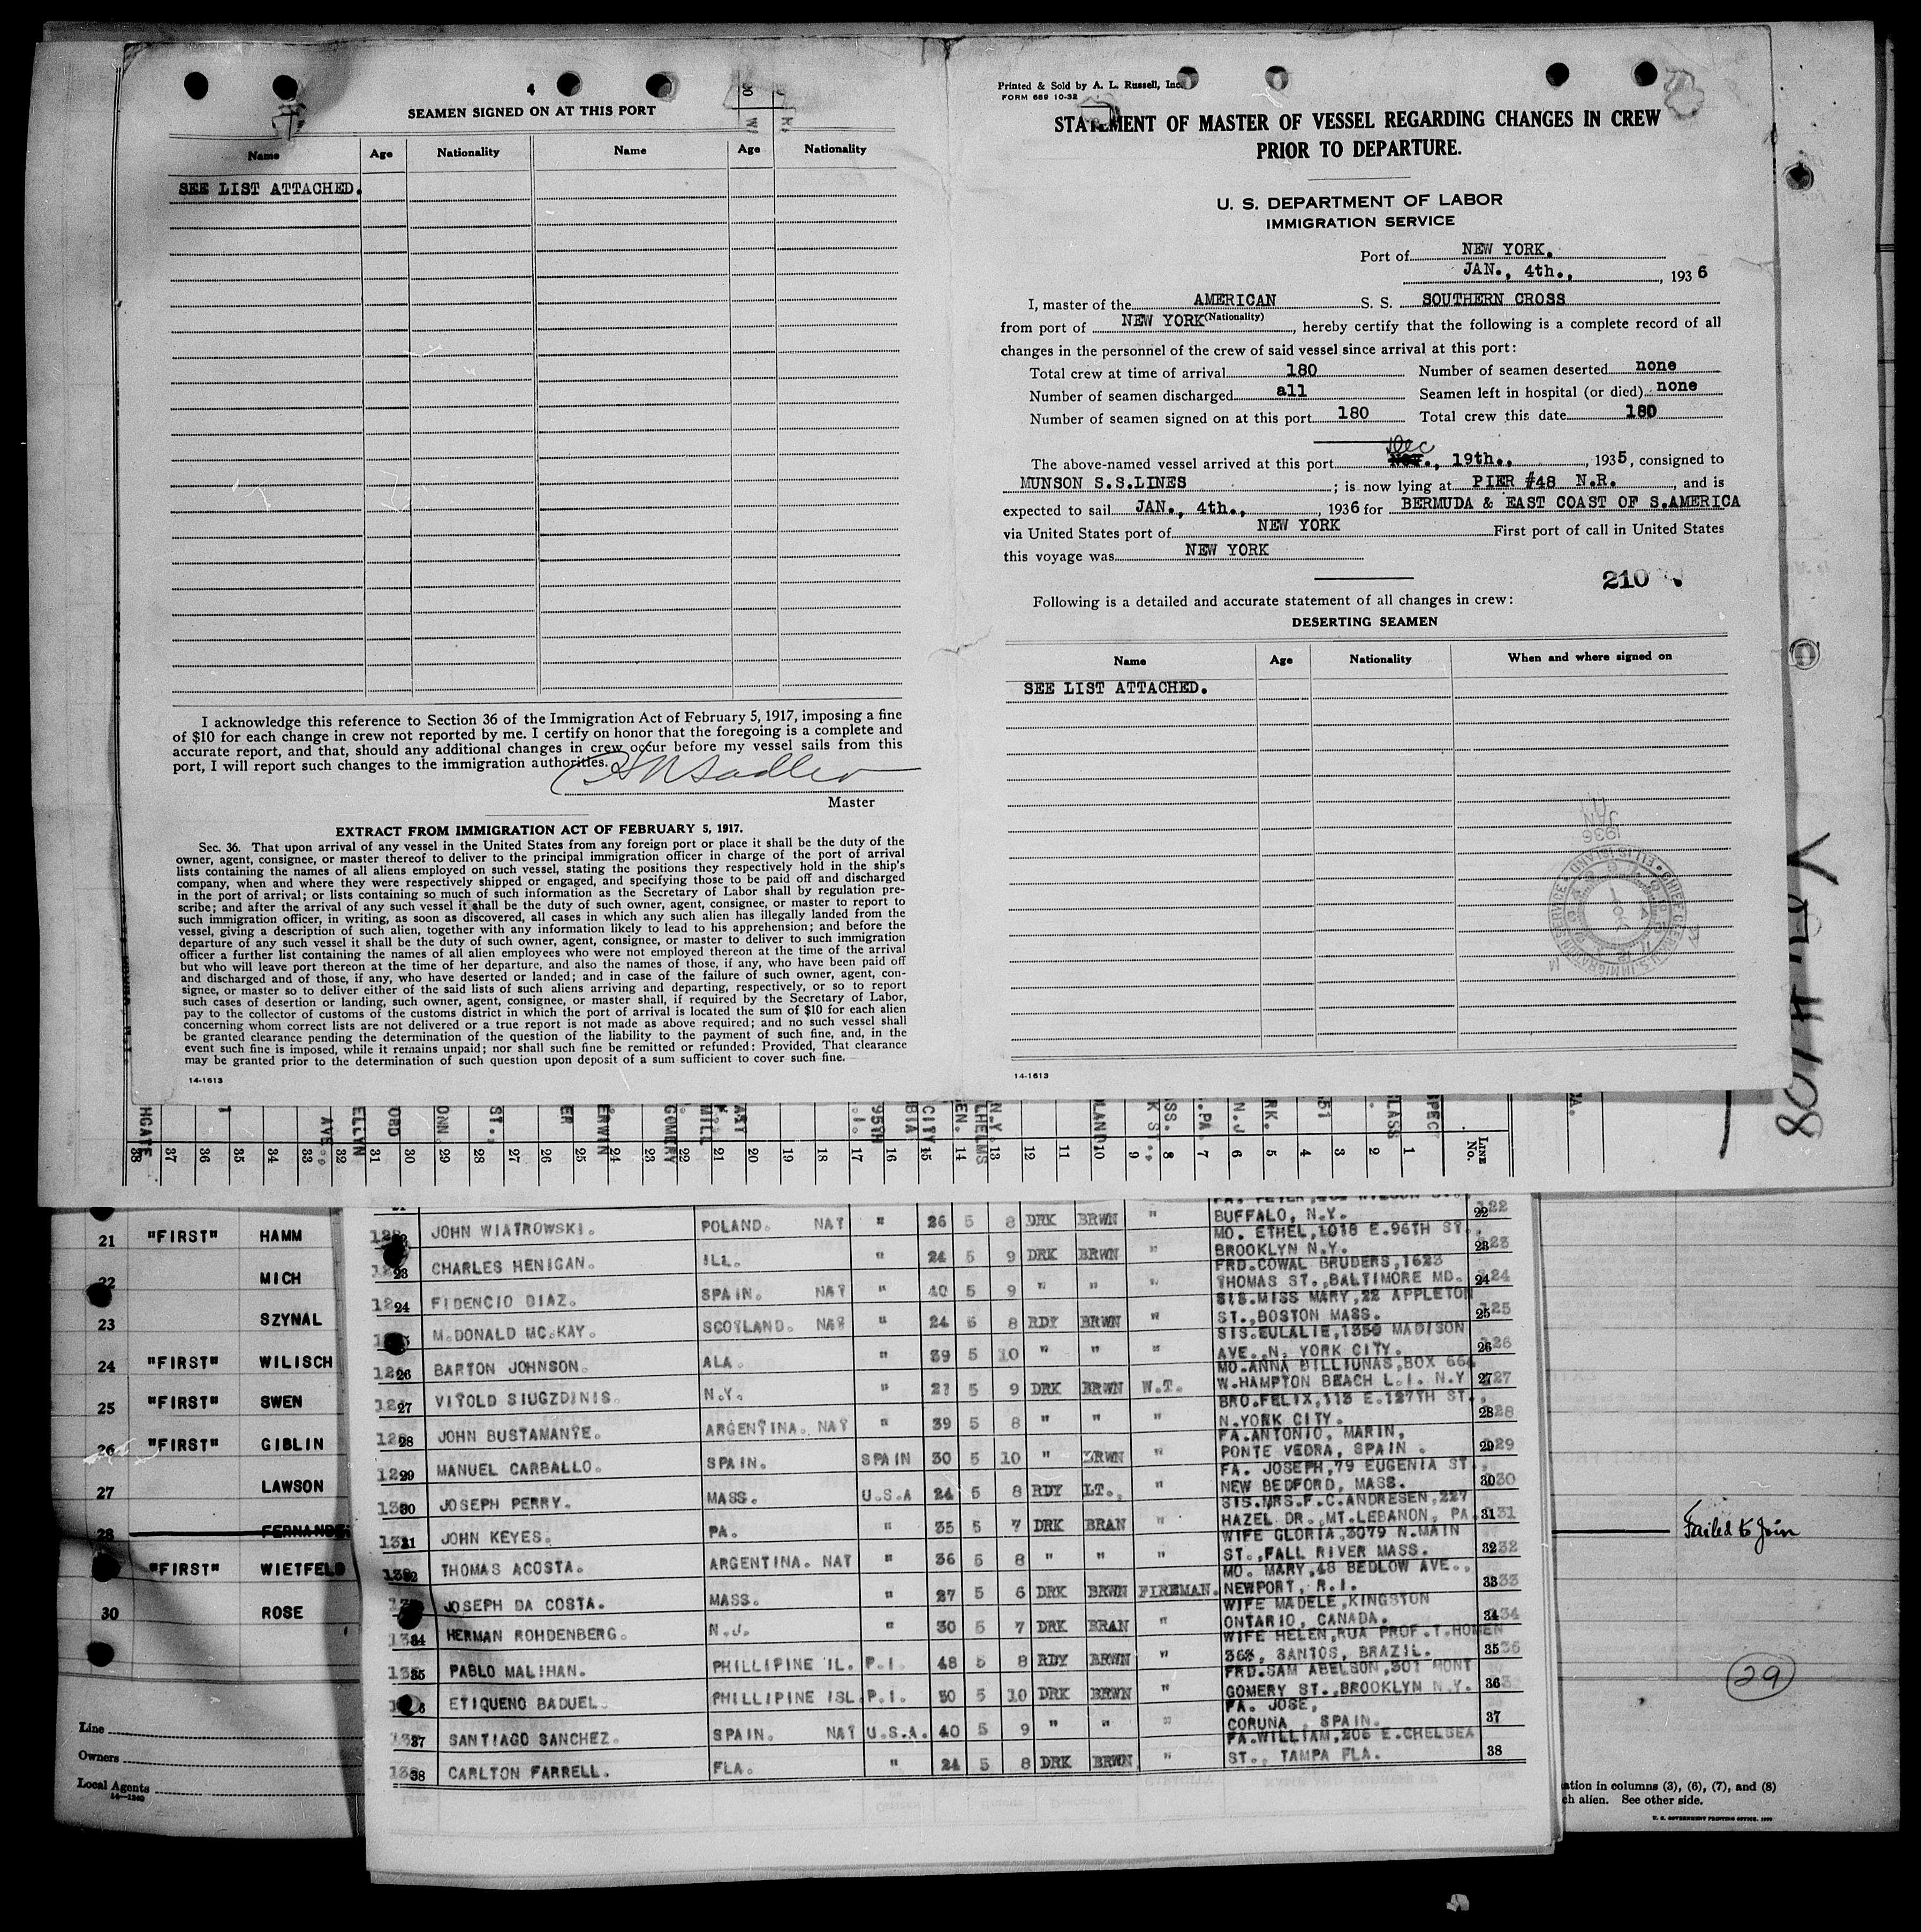 4
SEAMEN SIGNED ON AT THIS PORT
Name Age Nationality Name Age Nationality
SEE LIST ATTACHED.
I acknowledge this reference to Section 36 of the Immigration Act of February 5, 1917, imposing a fine
of $10 for each change in crew not reported by me. I certify on honor that the foregoing is a complete and
accurate report, and that, should any additional changes in crew occur before my vessel sails from this
port, I will report such changes to the immigration authorities.
Master
EXTRACT FROM IMMIGRATION ACT OF FEBRUARY 5, 1917.
Sec. 36. That upon arrival of any vessel in the United States from any foreign port or place it shall be the duty of the
owner, agent, consignee, or master thereof to deliver to the principal immigration officer in charge of the port of arrival
lists containing the names of all aliens employed on such vessel, stating the positions they respectively hold in the ship's
company, when and where they were respectively shipped or engaged, and specifying those to be paid off and discharged
in the port of arrival; or lists containing so much of such information as the Secretary of Labor shall by regulation pre-
scribe; and after the arrival of any such vessel it shall be the duty of such owner, agent, consignee, or master to report to
such immigration officer, in writing, as soon as discovered, all cases in which any such alien has illegally landed from the
vessel, giving a description of such alien, together with any information likely to lead to his apprehension; and before the
departure of any such vessel it shall be the duty of such owner, agent, consignee, or master to deliver to such immigration
officer a further list containing the names of all alien employees who were not employed thereon at the time of the arrival
but who will leave port thereon at the time of her departure, and also the names of those, if any, who have been paid off
and discharged and of those, if any, who have deserted or landed; and in case of the failure of such owner, agent, con-
signee, or master so to deliver either of the said lists of such aliens arriving and departing, respectively, or so to report
such cases of desertion or landing, such owner, agent, consignee, or master shall, if required by the Secretary of Labor,
pay to the collector of customs of the customs district in which the port of arrival is located the sum of $10 for each alien
concerning whom correct lists are not delivered or a true report is not made as above required; and no such vessel shall
be granted clearance pending the determination of the question of the liability to the payment of such fine, and, in the
event such fine is imposed, while it remains unpaid; nor shall such fine be remitted or refunded: Provided, That clearance
may be granted prior to the determination of such question upon deposit of a sum sufficient to cover such fine.
14-1613
Printed & Sold by A. L. Russell, Inc.
FORM 689 10-32
STATEMENT OF MASTER OF VESSEL REGARDING CHANGES IN CREW
PRIOR TO DEPARTURE.
U. S. DEPARTMENT OF LABOR
IMMIGRATION SERVICE
Port of NEW YORK.
JAN., 4th., , 1936
I, master of the AMERICAN S. S. SOUTHERN CROSS
from port of NEW YORK (Nationality), hereby certify that the following is a complete record of all
changes in the personnel of the crew of said vessel since arrival at this port:
Total crew at time of arrival 180 Number of seamen deserted none
Number of seamen discharged all Seamen left in hospital (or died) none
Number of seamen signed on at this port 180 Total crew this date 180
Dec
The above-named vessel arrived at this port Nov., 19th., , 1935, consigned to
MUNSON S.S.LINES ; is now lying at PIER #48 N.R. , and is
expected to sail JAN., 4th., , 1936 for BERMUDA & EAST COAST OF S.AMERICA
via United States port of NEW YORK First port of call in United States
this voyage was NEW YORK
210
Following is a detailed and accurate statement of all changes in crew:
DESERTING SEAMEN
Name Age Nationality When and where signed on
SEE LIST ATTACHED.
JAN 1936
14-1613
38 37 36 35 34 33 32 31 30 29 28 27 26 25 24 23 22 21 20 19 18 17 16 15 14 13 12 11 10 9 8 7 6 5 4 3 2 1 LINE No.
21 "FIRST" HAMM
22 MICH
23 SZYNAL
24 "FIRST" WILISCH
25 "FIRST" SWEN
26 "FIRST" GIBLIN
27 LAWSON
28 Failed to Join
"FIRST" WIETFELD
30 ROSE
Line
Owners
Local Agents
14-1240
BUFFALO, N.Y.
JOHN WIATROWSKI. POLAND. NAT " 26 5 8 DRK BRWN " MO. ETHEL,1018 E.96TH ST.
BROOKLYN N.Y. 23
CHARLES HENIGAN. ILL. " 24 5 9 DRK BRWN " FRD.COWAL BRUDERS,1623
THOMAS ST.,BALTIMORE MD. 24
FIDENCIO DIAZ. SPAIN. NAT " 40 5 9 " " " SIS.MISS MARY,22 APPLETON
ST.,BOSTON MASS. 25
M.DONALD MC.KAY. SCOTLAND. NAT " 24 5 8 RDY BRWN " SIS.EULALIE,1350 MADISON
AVE.,N. YORK CITY. 26
BARTON JOHNSON. ALA. " 39 5 10 " " " MO.ANNA BILLIUNAS,BOX 664
W.HAMPTON BEACH L.I. N.Y 27
VITOLD SIUGZDINIS. N.Y. " 21 5 9 DRK BRWN W.T. BRO.FELIX,113 E.127TH ST.,
N.YORK CITY. 28
JOHN BUSTAMANTE. ARGENTINA. NAT " 39 5 8 " " " FA.ANTONIO, MARIN,
PONTE VEDRA, SPAIN . 29
MANUEL CARBALLO. SPAIN. SPAIN 30 5 10 " BRWN " FA. JOSEPH,79 EUGENIA ST.
NEW BEDFORD, MASS. 30
JOSEPH PERRY. MASS. U.S.A 24 5 8 RDY LT., " SIS.MRS.F.C.ANDRESEN,227
HAZEL DR., MT.LEBANON, PA. 31
JOHN KEYES. PA. " 35 5 7 DRK BRAN " WIFE GLORIA,3079 N.MAIN
ST.,FALL RIVER MASS. 32
THOMAS ACOSTA. ARGENTINA. NAT " 36 5 8 " " " MO. MARY,48 BEDLOW AVE.,
NEWPORT, R.I. 33
JOSEPH DA COSTA. MASS. " 27 5 6 DRK BRWN FIREMAN. WIFE MADELE,KINGSTON
ONTARIO, CANADA. 34
HERMAN ROHDENBERG. N.J. " 30 5 7 DRK BRAN " WIFE HELEN,RUA PROF.T.HOMEN
363, SANTOS, BRAZIL. 35
PABLO MALIHAN. PHILLIPINE IL. P.I. 48 5 8 RDY BRWN " FRD.SAM ABELSON,301 MONT
GOMERY ST.,BROOKLYN N.Y. 36
ETIQUENO BADUEL. PHILLIPINE ISL. P.I. 30 5 10 DRK BRWN " FA. JOSE,
CORUNA , SPAIN. 37
SANTIAGO SANCHEZ. SPAIN. NAT U.S.A. 40 5 9 " " " FA.WILLIAM,206 E.CHELSEA
ST., TAMPA FLA. 38
CARLTON FARRELL. FLA. " 24 5 8 DRK BRWN "
29
ation in columns (3), (6), (7), and (8)
ch alien. See other side.